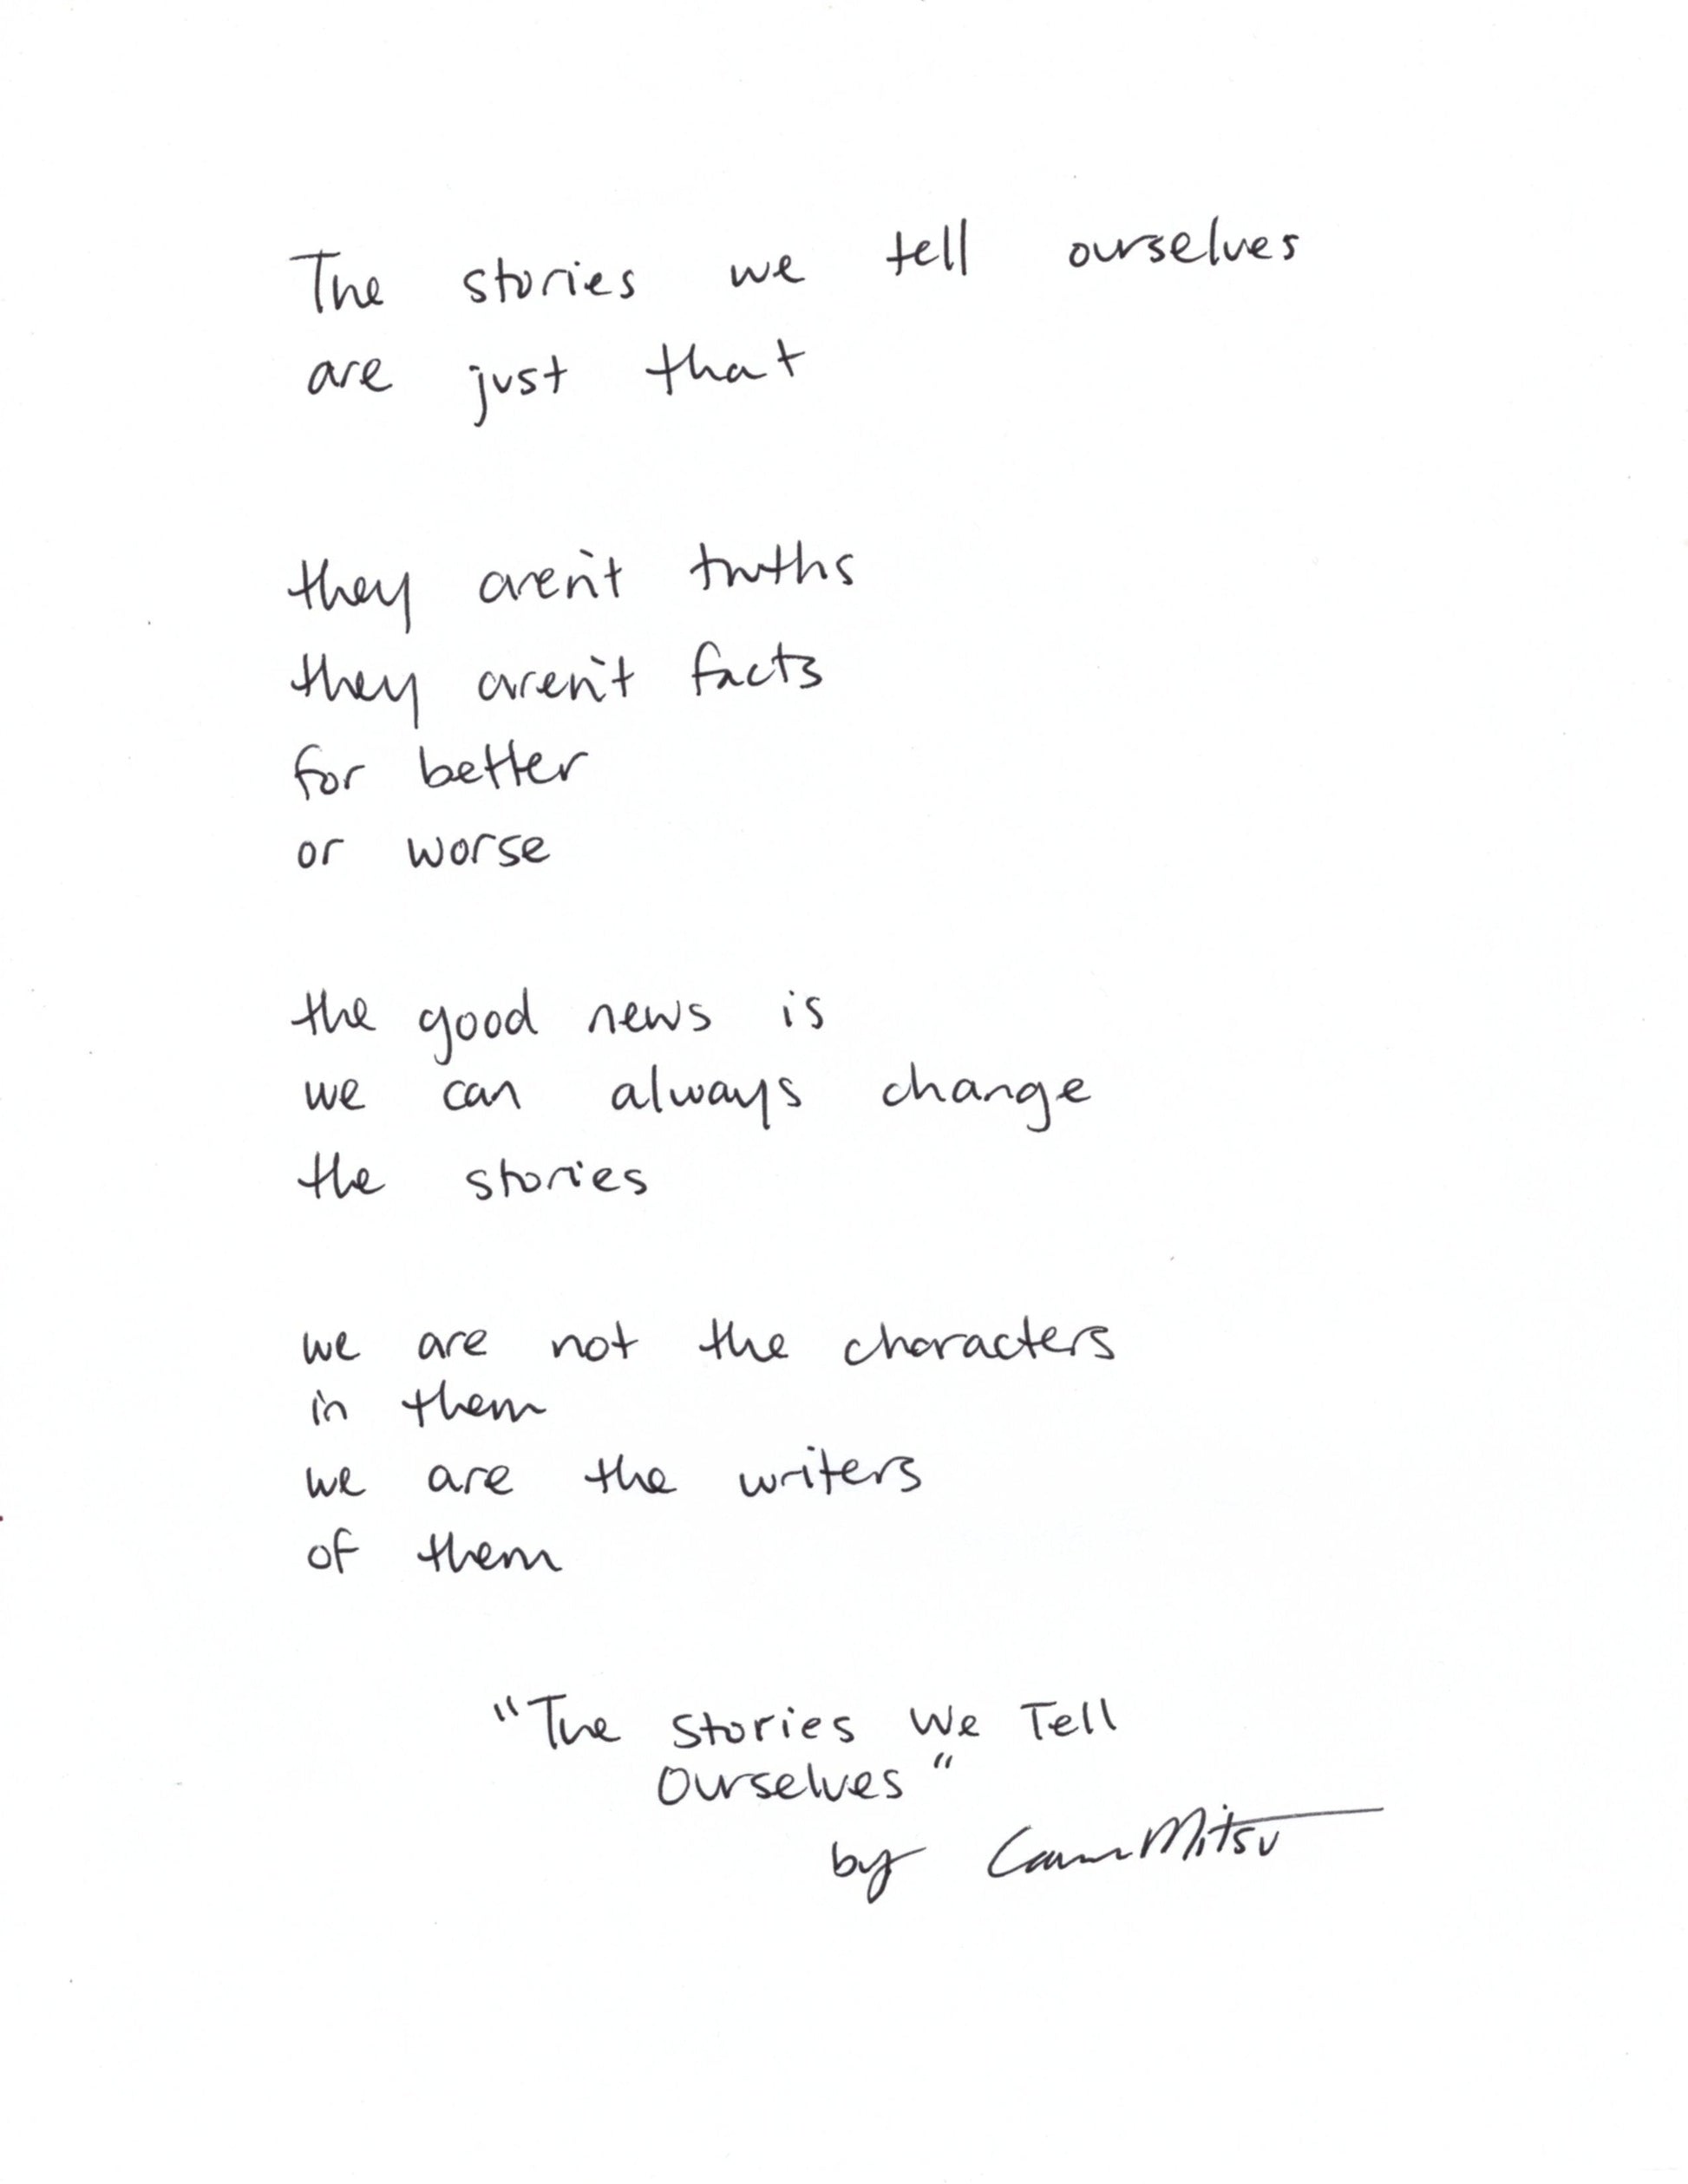 The stories we tell ourselves
are just that
they aren't truths
they aren't facts
for better
or worse
the good news is
we can always change
the stories
we are not the characters
in them
we are the writers
of them
"The Stories We Tell
Ourselves"
by Mitsu